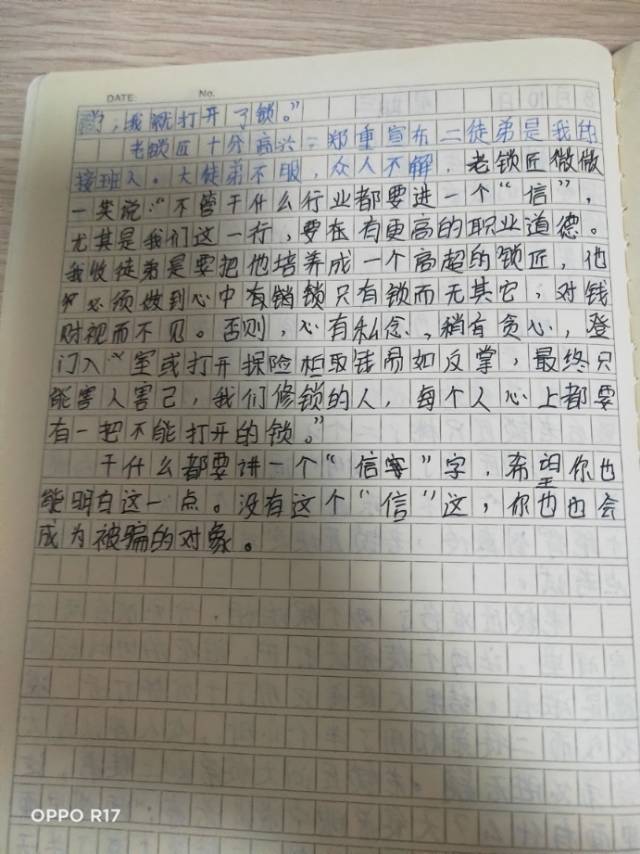 DATE: No.
，我就打开了锁。”
老锁匠十分高兴：郑重宣布二徒弟是我的
接班人。大徒弟不服，众人不解，老锁匠微微
一笑说：“不管干什么行业都要进一个“信”，
尤其是我们这一行，要在有更高的职业道德。
我收徒弟是要把他培养成一个高超的锁匠，他
必须做到心中有锁只有锁而无其它，对钱
财视而不见。否则，心有私念，稍有贪心，登
门入室或打开探险柜取钱易如反掌，最终只
能害人害己，我们修锁的人，每个人心上都要
有一把不能打开的锁。”
干什么都要讲一个“信”字，希望你也
能明白这一点。没有这个“信”这，你也也会
成为被骗的对象。
OPPO R17